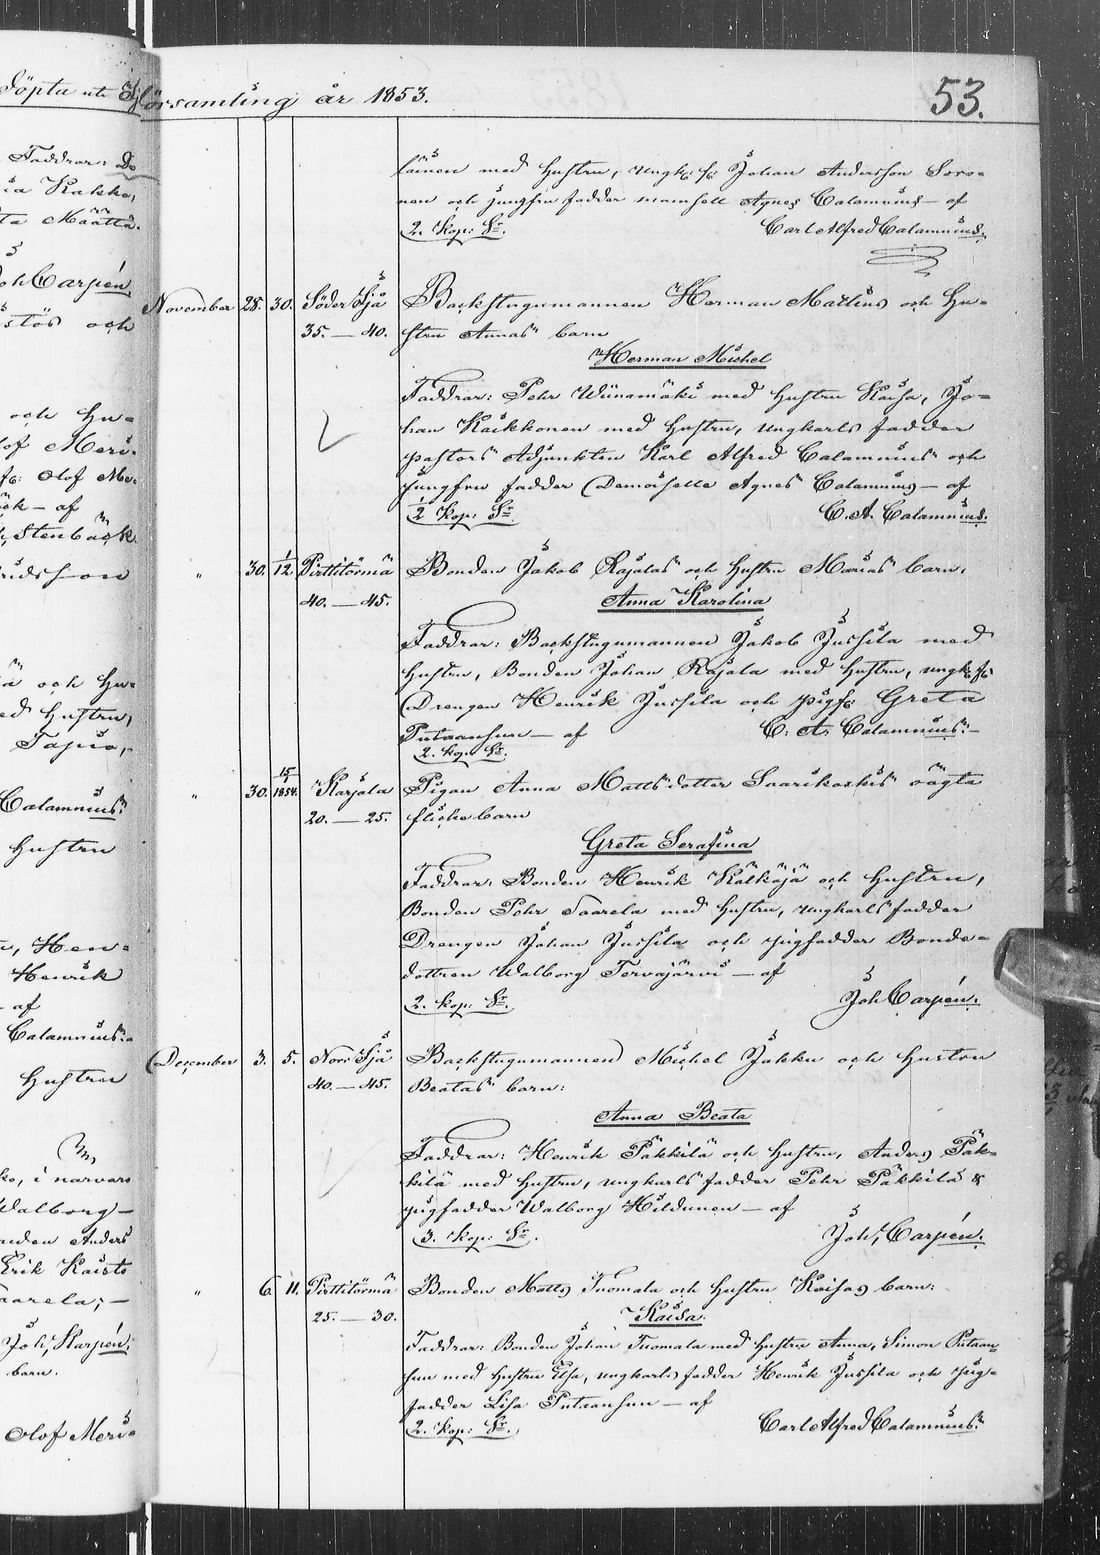 Döpta uti
Faddrar: Do
ia Kakko,
ta Määttä.
Joh Carpén
och
och Hu=
lof Meri=
fr. Olof Me=
af
Stenbäck
och Hu=
ed Hustru,
Tapio,
Calamnius.
Hustru
Hen=
Henrik
af
Calamnius.
Hustru
i närvaro
Walborg —
nden Anders
Erik Kaisto
aarela; —
Joh. Karpén.
barn.
Olof Meri=
församling år 1853. 53.
lainen med hustru, ungk: f: Johan Andersson Sorvo=
nen och jungfru fadder mamsell Agnes Calamnius — af
2. kop: Sr. Carl Alfred Calamnius.
November 28. 30. Söder Sjä Backstugumannen Herman Matlins och Hu=
35. — 40. stru Annas barn
Herman Michel
Faddrar: Pehr Wiinamäki med hustru Kaisa, Jo=
han Kaikkonen med hustru, ungkarls fadder
pastors Adjunkten Karl Alfred Calamnius och
jungfru fadder Demoiselle Agnes Calamnius — af
½ kop: Sr. C. A. Calamnius.
" 30. 1/12 Pirttitörmä Bonden Jakob Rajalas och hustru Marias barn:
40. — 45. Anna Karolina
Faddrar: Backstugumannen Jakob Jussila med
hustru, Bonden Johan Rajala med hustru, ungk: f:
Drengen Henrik Jussila och pigf: Greta
Putaansuu — af C. A. Calamnius. —
2. kop. Sr.
" 30. 15/1 1854. Karjala Pigan Anna Mattsdotter Saarikoskis oägta
20. — 25. flickebarn
Greta Serafina
Faddrar: Bonden Henrik Kälkäjä och hustru,
Bonden Pehr Saarela med hustru, ungkarls fadder
Drengen Johan Jussila och pigfadder Bonde=
dottren Walborg Tervajärvi — af
2. kop: Sr. Joh Carpén.
December 3. 5. Norr Sjä Backstugumannen Michel Jakku och hustru
40. — 45. Beatas barn:
Anna Beata
Faddrar: Henrik Päkkilä och hustru, Anders Päk=
kilä med hustru, ungkarls fadder Pehr Päkkilä &
pigfadder Walborg Hildunen — af
3. kop: Sr. Joh. Carpén.
" 6. 11. Pirttitörmä Bonden Matts Tuomala och hustru Kaisas barn:
25. — 30. Kaisa.
Faddrar: Bonden Johan Tuomala med hustru Anna, Simon Putaan=
suu med hustru Elsa, ungkarls fadder Henrik Jussila och pig=
fadder Lisa Putaansuu — af
2. kop: Sr. Carl Alfred Calamnius.